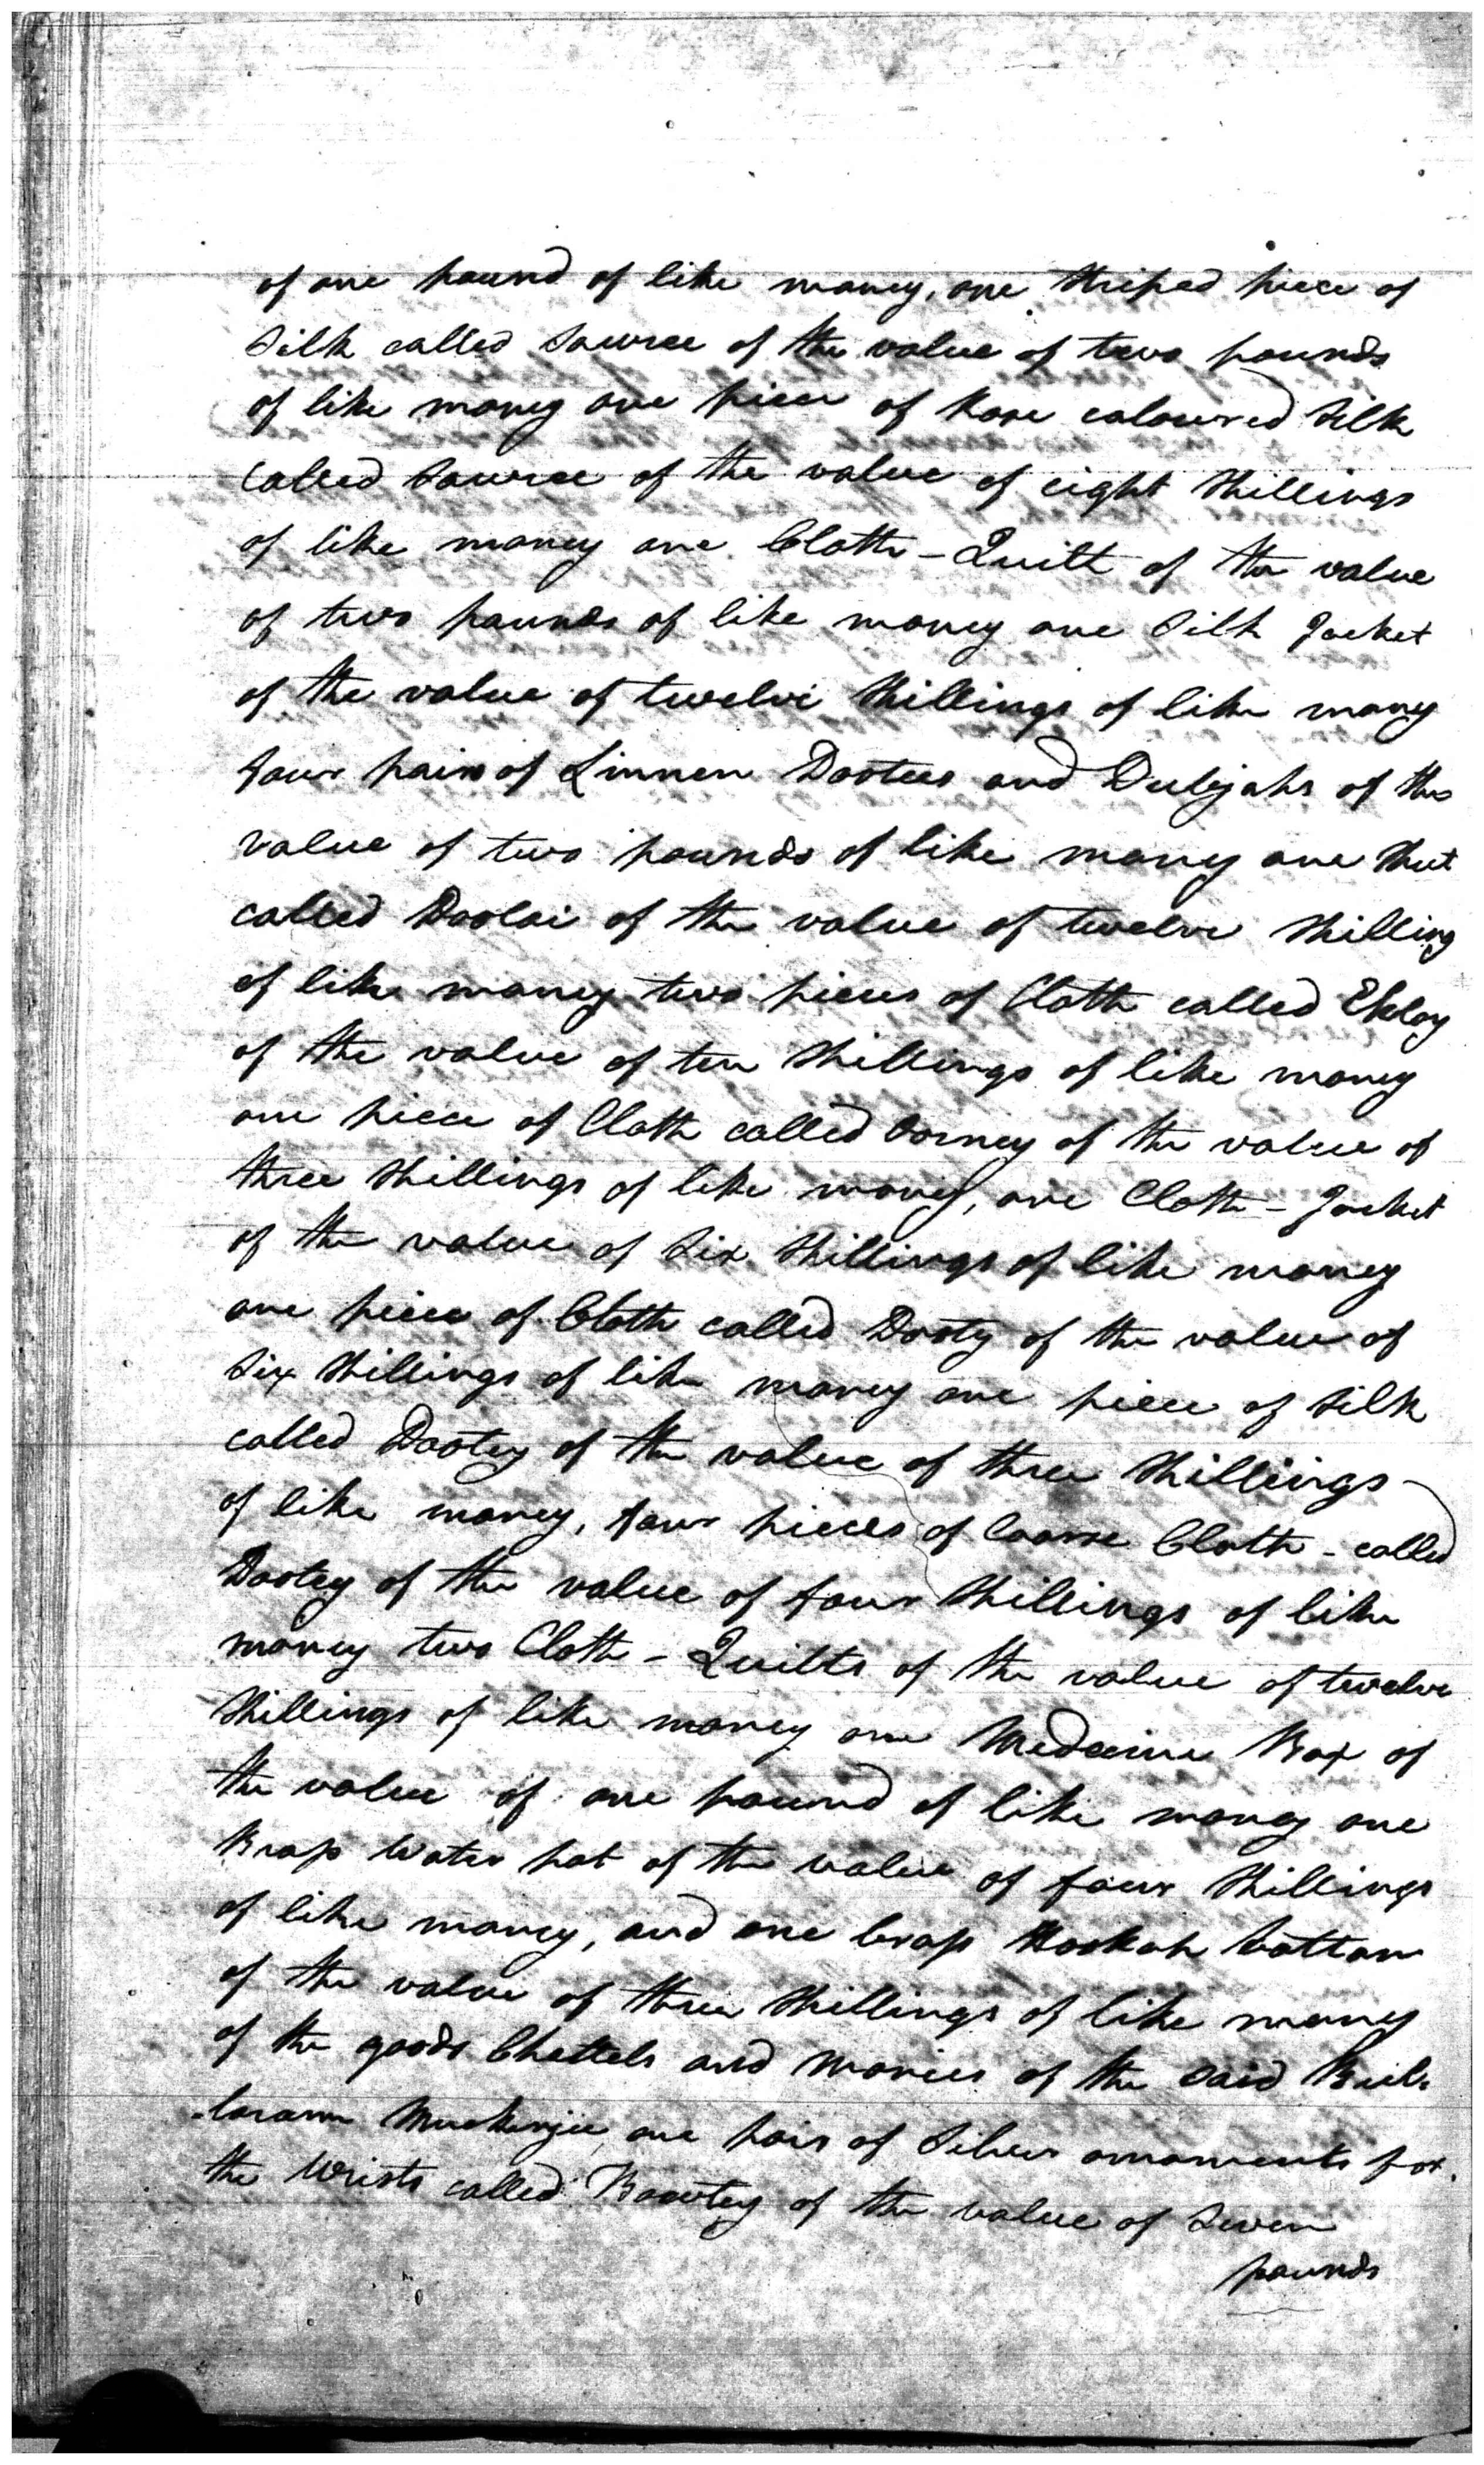 of one pound of like money, one striped piece of
Silk called Sawree of the value of two pounds
of like money one piece of Rose coloured Silk
called Sawree of the value of eight Shillings
of like money one Cloth - Quilt of the value
of two pounds of like money one Silk Jacket
of the value of twelve Shillings of like money
four pairs of Linnen Dootees and Dubjahs of the
value of two pounds of like money one Sheet
called Doolai of the value of twelve Shilling
of like money two pieces of Cloth called Ekloy
of the value of ten Shillings of like money
one piece of Cloth called Dorney of the value of
three Shillings of like money, one Cloth - Jacket
of the value of Six Shillings of like money
one piece of Cloth called Dooty of the value of
Six Shillings of like money one piece of Silk
called Dootey of the value of three Shillings
of like money, four pieces of Coarse Cloth - called
Dootey of the value of four Shillings of like
money two Cloth - Quilts of the value of twelve
Shillings of like money one Medecine Box of
the value of one pound of like money one
Brass Water pot of the value of four Shillings
of like money, and one brass Hookah bottom
of the value of three Shillings of like money
of the goods Chattels and Monies of the said
Mukerjee one pair of Silver ornaments for
the Wrists called Bowtey of the value of Seven
pounds